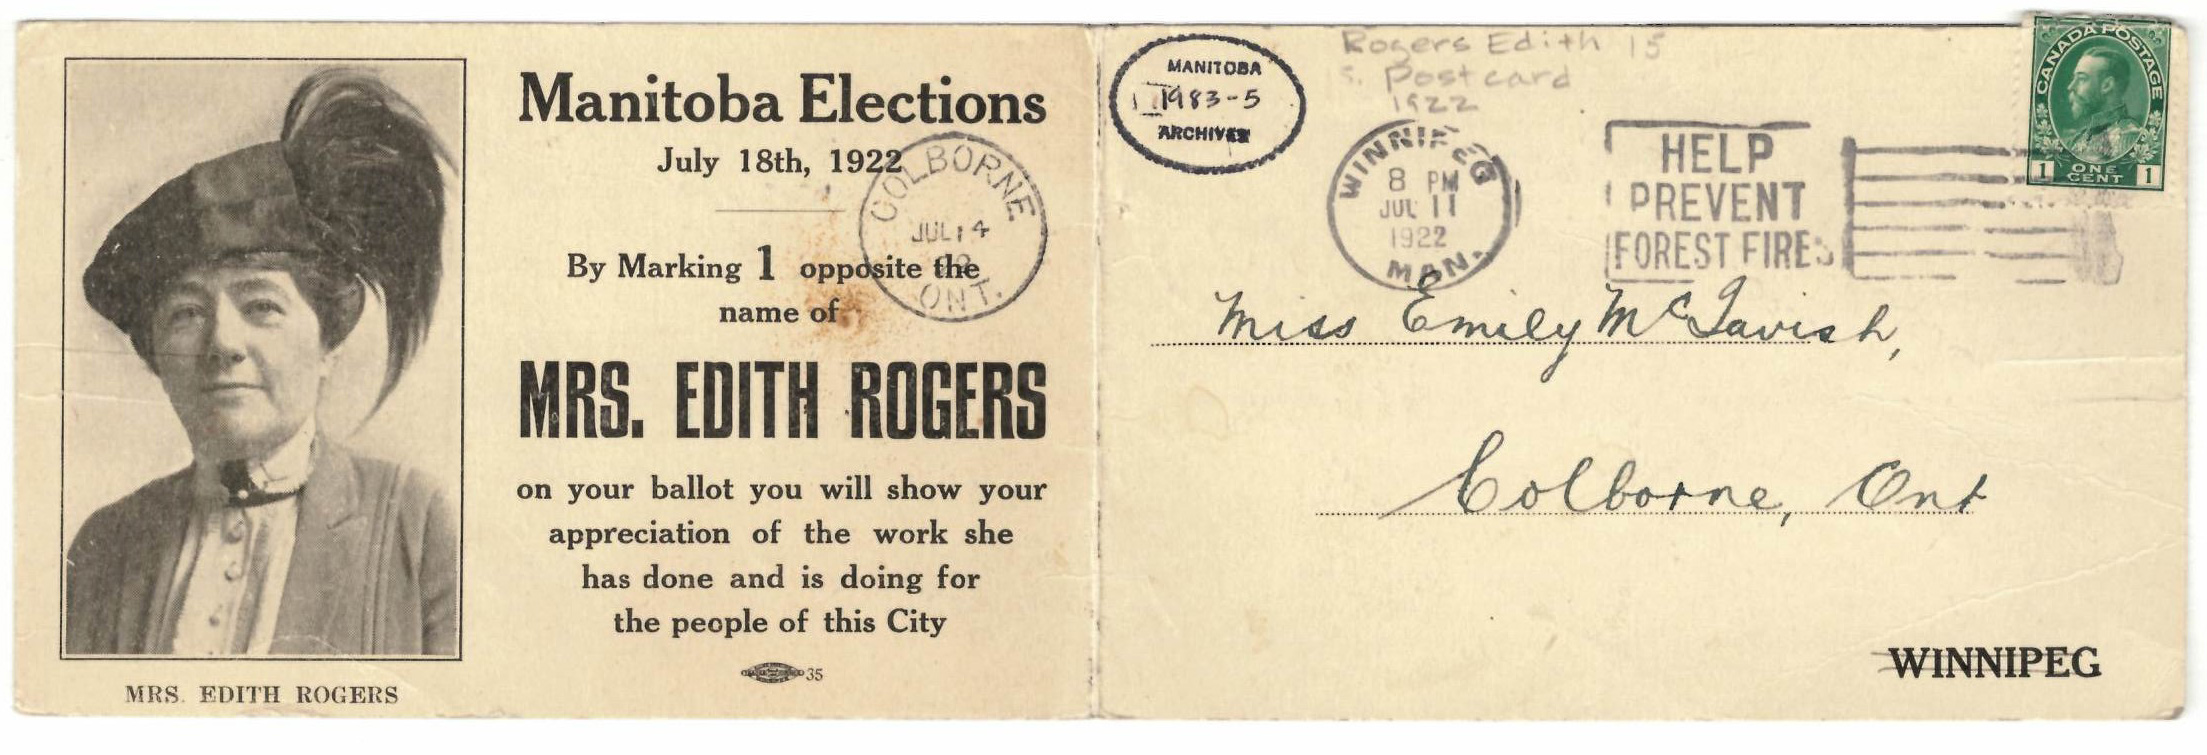 Manitoba Elections
July 18th, 1922
By Marking 1 opposite the
name of
MRS. EDITH ROGERS
on your ballot you will show your
appreciation of the work she
has done and is doing for
the people of this City
35
MRS. EDITH ROGERS
COLBORNE
JUL 14
ONT.
MANITOBA
1983-5
ARCHIVES
Rogers Edith 15
Postcard
1922
WINNIPEG
8 PM
JUL 11
1922
MAN.
HELP
PREVENT
FOREST FIRES
CANADA POSTAGE
1 ONE CENT 1
Miss Emily McTavish,
Colborne, Ont
WINNIPEG